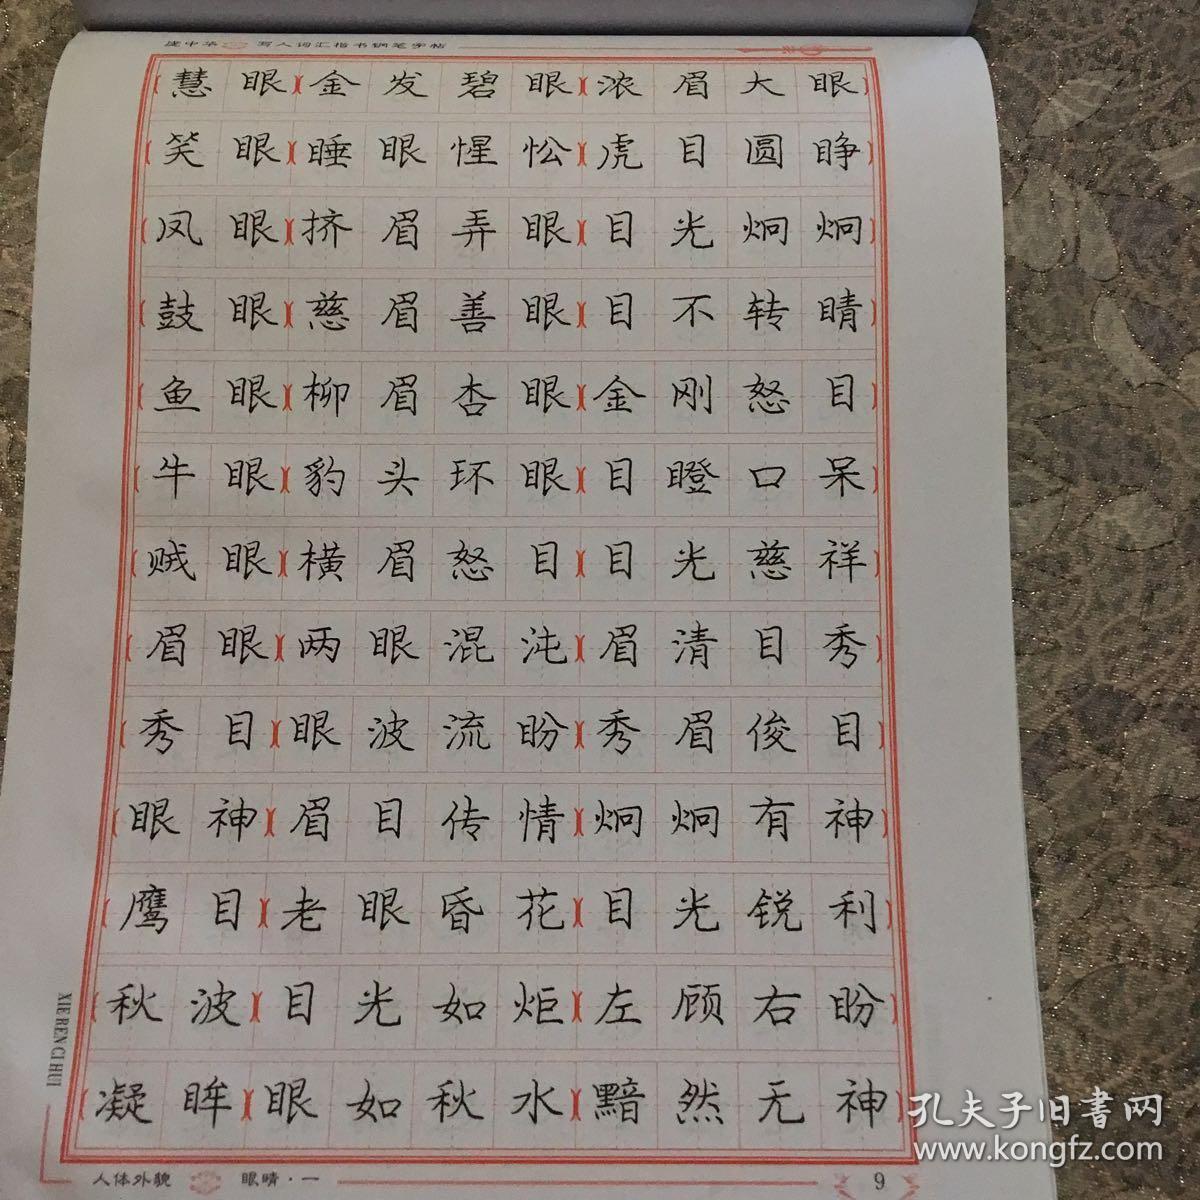 庞中华 写人词汇楷书钢笔字帖
慧眼 金发碧眼 浓眉大眼
笑眼 睡眼惺忪 虎目圆睁
凤眼 挤眉弄眼 目光炯炯
鼓眼 慈眉善眼 目不转睛
鱼眼 柳眉杏眼 金刚怒目
牛眼 豹头环眼 目瞪口呆
贼眼 横眉怒目 目光慈祥
眉眼 两眼混沌 眉清目秀
秀目 眼波流盼 秀眉俊目
眼神 眉目传情 炯炯有神
鹰目 老眼昏花 目光锐利
秋波 目光如炬 左顾右盼
凝眸 眼如秋水 黯然无神
XIE REN CI HUI
人体外貌 眼睛·一 9
孔夫子旧書网
www.kongfz.com